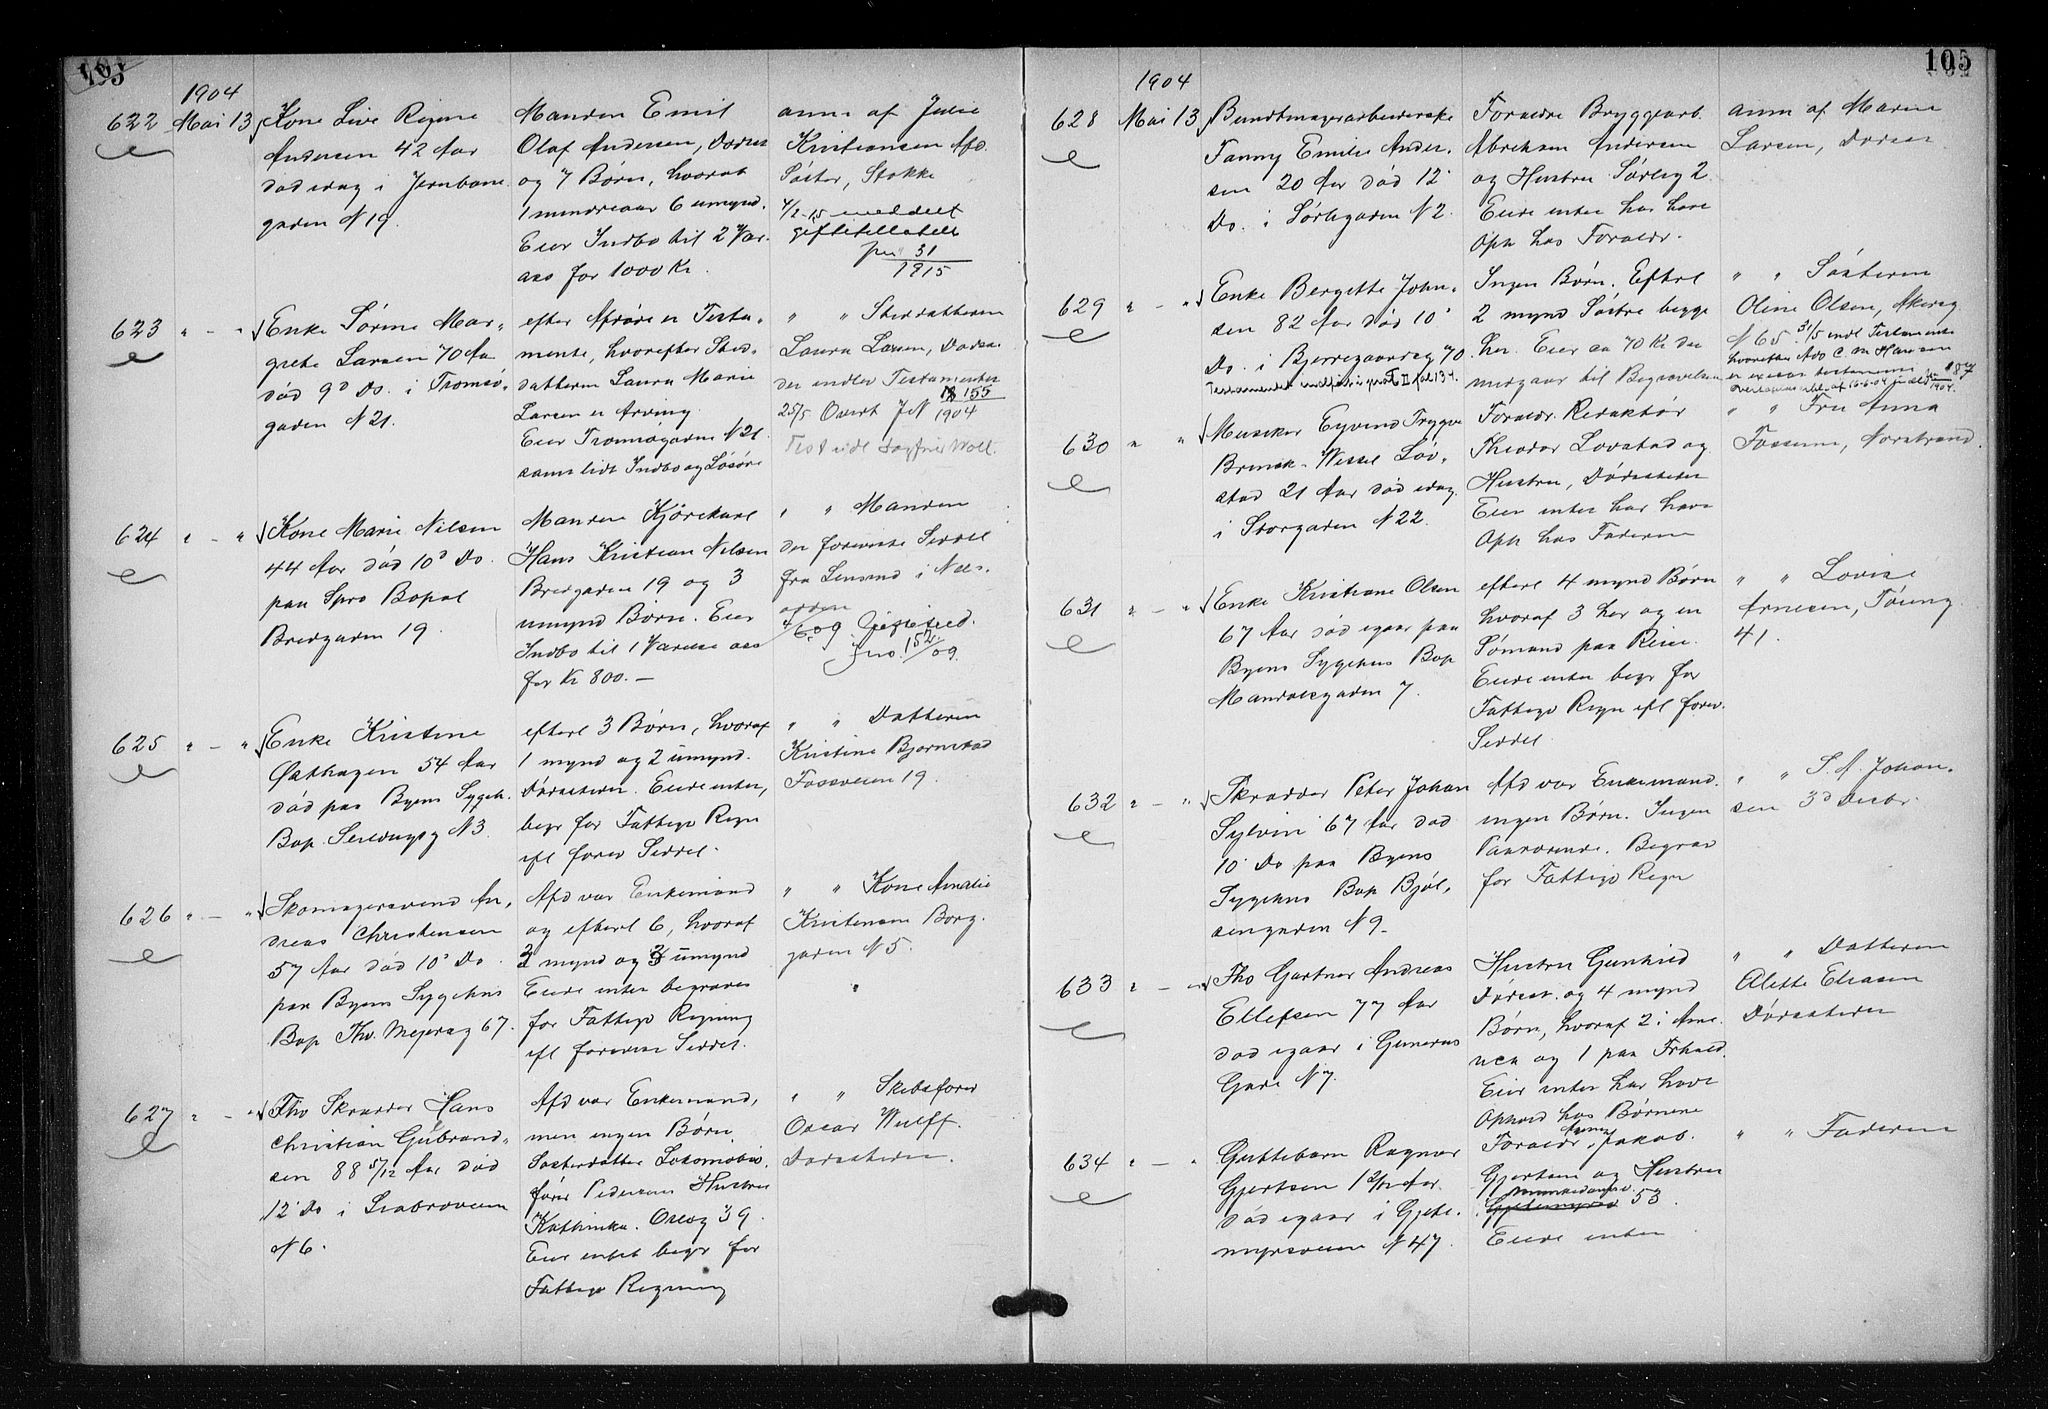 105
1904
622 Mai 13 Kone Live Regine
Andersen 42 Aar
død idag i Jernbane
gaden N 19.
Manden Emil
Olaf Andersen, Dødsst
og 7 Børn, hvoraf
1 mindreaar 6 umynd.
Eier Indbo til 2 Vær.
ass for 1000 Kr.
anm. af Julie
Kristiansen Afd.
Søster, Stokke
4/2-15 meddelt
giftetilladelse
31
1915
623 " - " Enke Sørine Mar-
grete Larsen 70 Aar
død 9d Ds. i Tromsø-
gaden N 21.
efter Afdøde er Testa-
mente, hvorefter Sted-
datteren Laura Marie
Larsen er Arving.
Eier Tromsøgaden N 21
samt lidt Indbo og Løsøre
" " Steddatteren
Laura Larsen, Dødss.
der indlev Testamentet
25/5 Overt J N 155
1904
624 " - " Kone Marie Nilsen
44 Aar død 10d Ds.
paa Spro Bopæl
Bredgaden 19.
Manden Kjørekarl
Hans Kristian Nilsen
Bredgaden 19 og 3
umynd Børn. Eier
Indbo til 1 Værelse ass
for Kr 800.-
" " Manden
der foreviste Seddel
fra Lensmd i Nes-
odden
4/6.09
Jno. 152/09.
625 " - " Enke Kristine
Østhagen 54 Aar
død paa Byens Sygeh.
Bop. Seilduksg N 3.
efterl 3 Børn, hvoraf
1 mynd og 2 umynd.
Dødsstedet. Eiede intet,
begr for Fattigv Regn
ifl forev Seddel.
" " Datteren
Kristine Bjørnstad
Fossveien 19.
626 " - " Skomagersvend An-
dreas Christensen
57 Aar død 10d Ds.
paa Byens Sygehus
Bop Thv. Meyersg 67.
Afd var Enkemand
og efterl 6, hvoraf
3 mynd og 3 umynd
Eiede intet begraves
for Fattigv Regning
ifl forevist Seddel.
" " Kone Amalie
Kristensen Borg.
gaden N 5.
627 " - " Fhv Skrædder Hans
Christian Gulbrand-
sen 88 5/12 Aar død
12' Ds i Ljabroveien
N 6.
Afd var Enkemand,
men ingen Børn.
Søsterdatter Lokomotiv-
fører Pedersens Hustru
Kathinka. Oslog 39.
Eier intet begr for
Fattigv Regning
" " Skibsfører
Oscar Wulff.
Dødsstedet.
105
1904
628 Mai 13 Bundtmagerarbeiderske
Fanny Emilie Ander-
sen 20 Aar død 12'
Ds. i Sørligaden N 2.
Forældre Bryggearb.
Abraham Andersen
og Hustru Sørlig 2.
Eiede intet har havt
Oph hos Forældr.
anm af Maren
Larsen, Dødsst
629 " - " Enke Bergitte John-
sen 82 Aar død 10'
Ds. i Bjerregaardsg 70.
Ingen Børn. Efterl
2 mynd Søstre begge
her. Eier ca 70 Kr der
medgaar til Begravelsen
" " Søsteren
Oline Olsen, Akersg
N 65. 31/5 indl Testamente
hvorefter Adv C. M. Hansen
er executor testamenti
1904.
630 " " Musiker Eyvind Trygve
Brinck-Wessel Løv-
stad 21 Aar død idag
i Storgaden N 22.
Forældr. Redaktør
Theodor Løvstad og
Hustru, Dødsstedet
Eier intet har havt
Oph hos Faderen
" " Fru Anna
Fossum, Norstrand.
631 " - " Enke Kristiane Olsen
67 Aar død igaar paa
Byens Sygehus Bop
Mandalsgaden 7.
efterl 4 mynd Børn
hvoraf 3 her og en
Sømand paa Reise.
Eiede intet begr for
Fattigv Regn ifl forev.
Seddel.
" " Lovise
Arnesen, Tøieng
41.
632 " - " Skrædder Peter Johan
Sylvin 67 Aar død
10' Ds paa Byens
Sygehus Bop Bjøl-
sengaden N 9.
Afd var Enkemand.
ingen Børn. Ingen
Paarørende. Begrav
for Fattigv Regn
" " S. A. Johan-
sen 3d Distr.
633 " - " Fhv Gartner Andreas
Ellefsen 77 Aar
død igaar i Gunerus
Gade N 7.
Hustru Gunhild
Dødsst. og 4 mynd
Børn, hvoraf 2 i Ame-
rica og 1 paa Frhald.
Eier intet har havt
Ophold hos Børnene
" " Datteren
Alette Eliasen
Dødsstedet
634 " - " Guttebarn Ragnar
Gjertsen 1 2/12 Aar.
død igaar i Gjete-
myrsveien N 47.
Forældr. Jakob.
Gjertsen og Hustru
53.
Eiede intet
" " Faderen